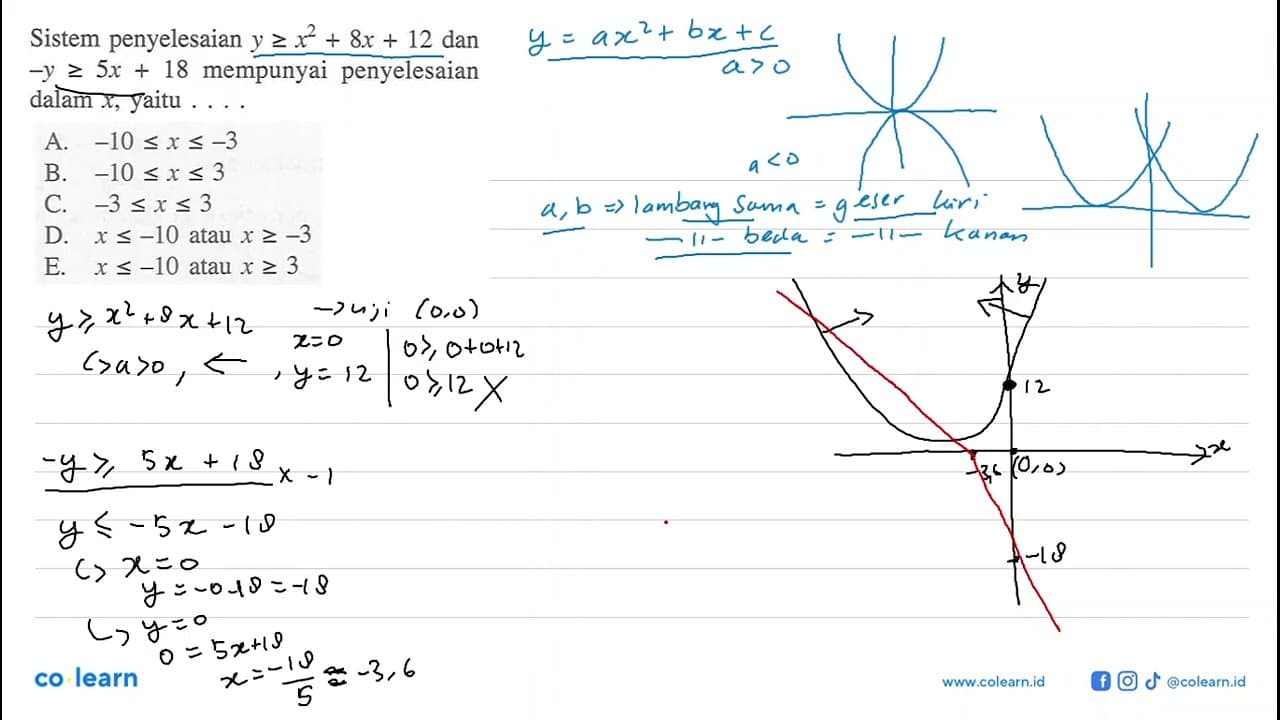 Sistem penyelesaian y ≥ x² + 8x + 12 dan
–y ≥ 5x + 18 mempunyai penyelesaian
dalam x, yaitu . . . .
A. –10 ≤ x ≤ –3
B. –10 ≤ x ≤ 3
C. –3 ≤ x ≤ 3
D. x ≤ –10 atau x ≥ –3
E. x ≤ –10 atau x ≥ 3
y = ax² + bx + c
a > 0
a < 0
a, b => lambang sama = geser kiri
—11– beda = —11— kanan
y ≥ x² + 8x + 12
↳ a > 0, ← , y = 12
→ uji (0,0)
x = 0
0 ≥ 0+0+12
0 ≥ 12 X
-y ≥ 5x + 18 x -1
y ≤ -5x - 18
↳ x = 0
y = -0-18 = -18
↳ y = 0
0 = 5x+18
x = -18/5 ≈ -3,6
y
12
x
-3,6 (0,0)
-18
co learn
www.colearn.id
@colearn.id